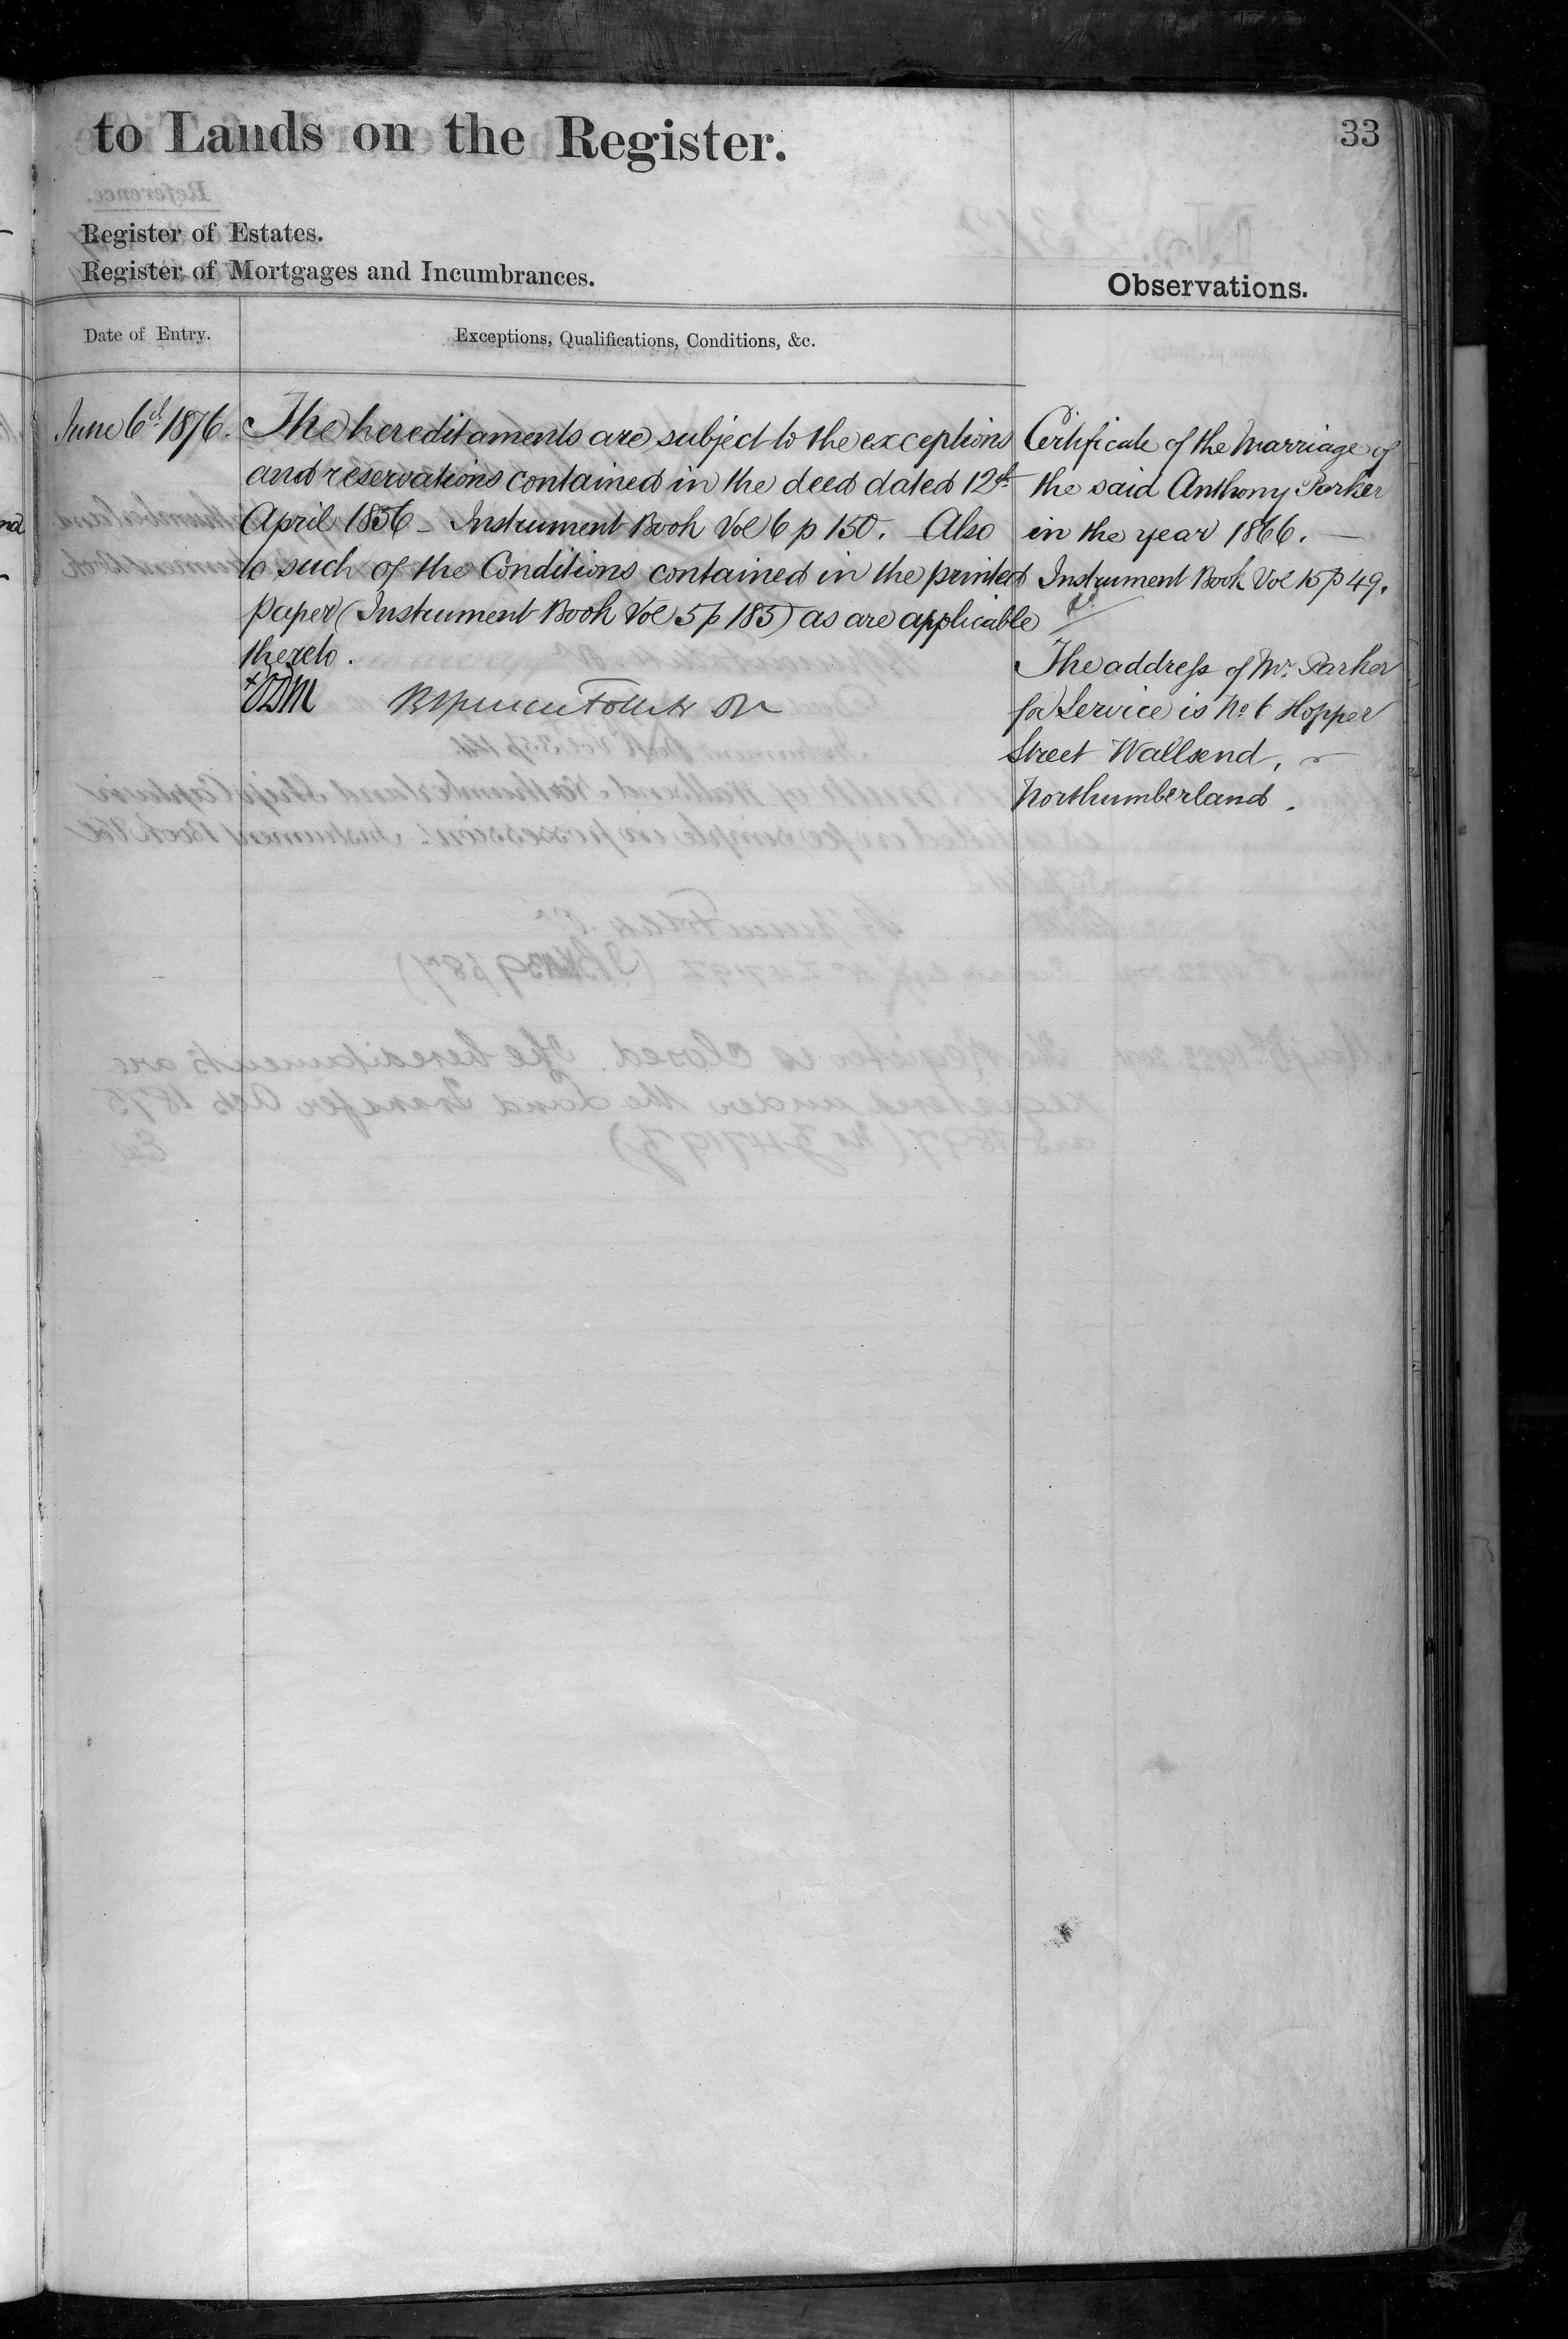 to Lands on the Register.
33
Register of Estates.
Register of Mortgages and Incumbrances.
Observations.
Date of Entry.
Exceptions, Qualifications, Conditions, &c.
June 6th 1876.
The hereditaments are subject to the exceptions
and reservations contained in the deed dated 12th
April 1856 - Instrument Book Vol 6 p 150. - Also
to such of the Conditions contained in the printed
paper (Instrument Book Vol 5 p 185) as are applicable
thereto.
Certificate of the Marriage of
the said Anthony Parker
in the year 1866. —
Instrument Book Vol 15 p 49.
The address of Mr. Parker
for Service is No 6 Hopper
Street Wallsend,
Northumberland.